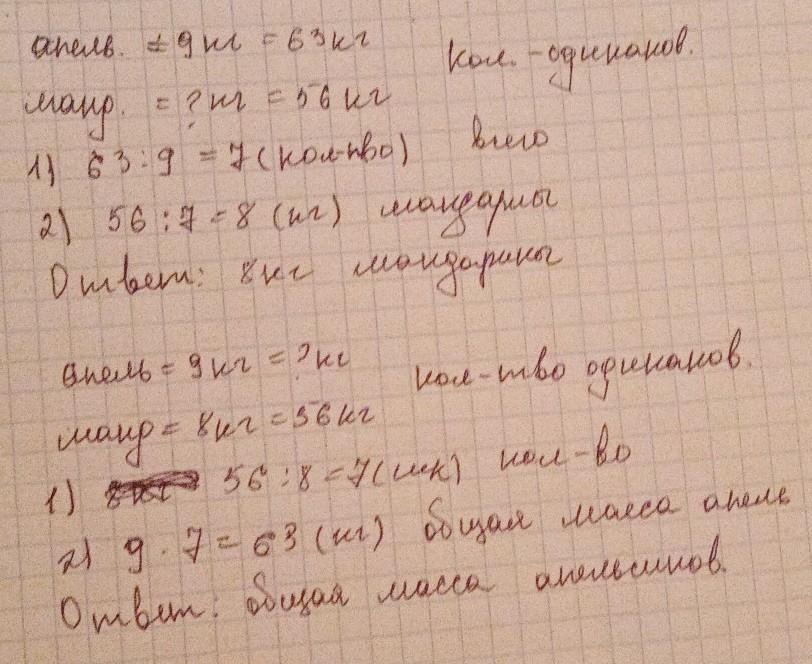 апельс. = 9 кг = 63 кг кол.-одинаков.
манд. = ? кг = 56 кг
1) 63 : 9 = 7 (кол-тво) всего
2) 56 : 7 = 8 (кг) мандарины
Ответ: 8 кг мандарины
апель = 9 кг = ? кг кол-тво одинаков.
манд = 8 кг = 56 кг
1) 56 : 8 = 7 (шк) кол-во
2) 9 · 7 = 63 (кг) общая масса апель
Ответ: общая масса апельсинов.